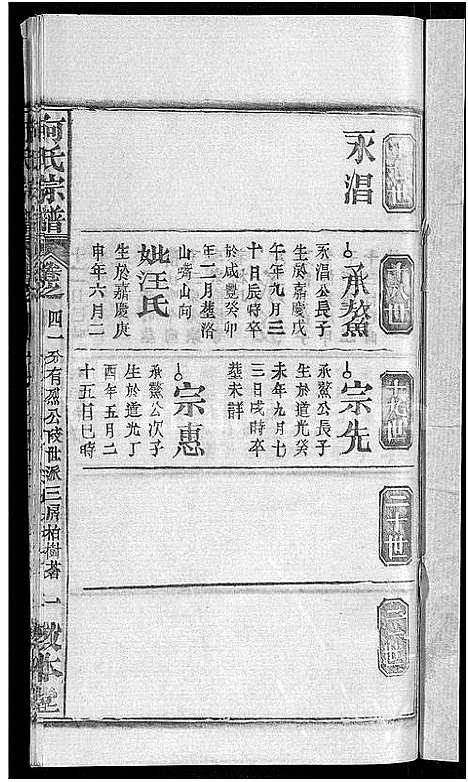 十七世
永淐
十八世
承鰲
永淐公長子
生於嘉慶戊
午年九月三
十月辰時卒
於咸豐癸卯
年二月塟洛
山嘴山向
妣汪氏
生於嘉慶庚
申年六月二
十九世
宗先
承鰲公長子
生於道光癸
未年九月十
三日戌時卒
塟未詳
宗惠
承鰲公次子
生於道光丁
酉年五月二
十五日巳時
二十世
二十一世
何氏宗譜
卷之
四一分有烈公後世派三房柏樹
一
敦本堂